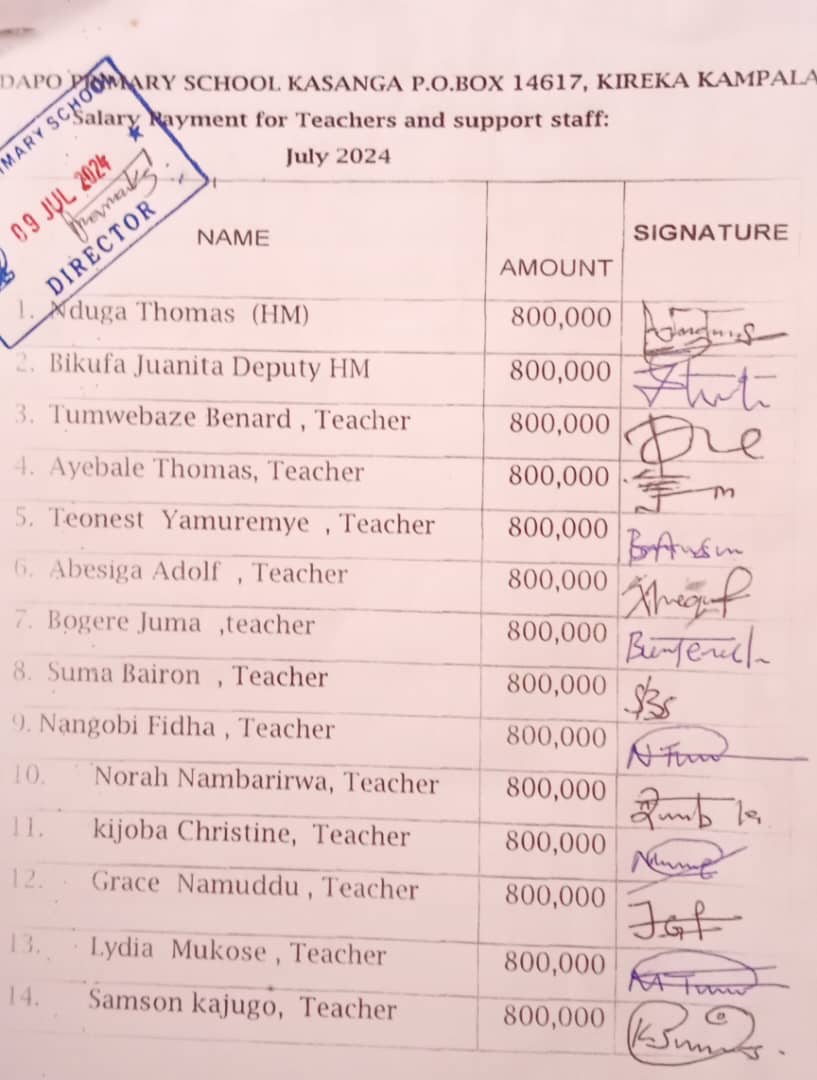 DAPO PRIMARY SCHOOL KASANGA P.O.BOX 14617, KIREKA KAMPALA
Salary Payment for Teachers and support staff:
July 2024
MARY SCHOOL
09 JUL 2024
DIRECTOR
NAME AMOUNT SIGNATURE
1. Nduga Thomas (HM) 800,000
2. Bikufa Juanita Deputy HM 800,000
3. Tumwebaze Benard , Teacher 800,000
4. Ayebale Thomas, Teacher 800,000
5. Teonest Yamuremye , Teacher 800,000
6. Abesiga Adolf , Teacher 800,000
7. Bogere Juma ,teacher 800,000
8. Suma Bairon , Teacher 800,000
9. Nangobi Fidha , Teacher 800,000
10. Norah Nambarirwa, Teacher 800,000
11. kijoba Christine, Teacher 800,000
12. Grace Namuddu , Teacher 800,000
13. Lydia Mukose , Teacher 800,000
14. Samson kajugo, Teacher 800,000